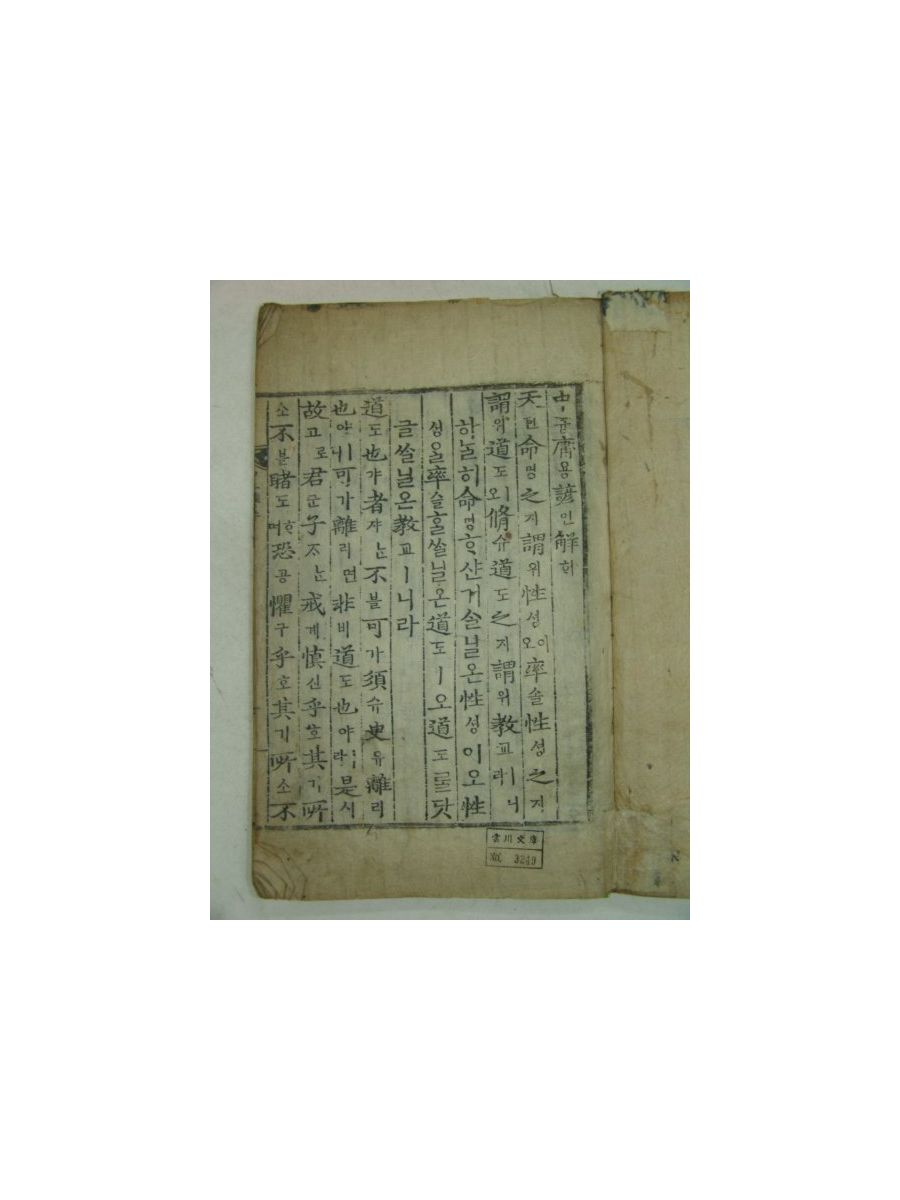 中듕庸용諺언解ᄒᆡ
天텬命명之지謂위性셩이오率솔性셩之지
謂위道도ㅣ오脩슈道도之지謂위教교ㅣ니라
하ᄂᆞᆯ히命명ᄒᆞ샨거ᄉᆞᆯ닐온性셩이오性
셩을率솔홀ᄡᆞᆯ닐온道도ㅣ오道도ᄅᆞᆯ닷
글ᄡᆞᆯ닐온教교ㅣ니라
道도也야者쟈ᄂᆞᆫ不블可가須슈臾유離리
也야ㅣ니可가離리면非비道도也야ㅣ라是시
故고로君군子ᄌᆞᄂᆞᆫ戒계慎신乎호其기所
소不블睹도ᄒᆞ며恐공懼구乎호其기所소不
雲川文庫
NO. 3249